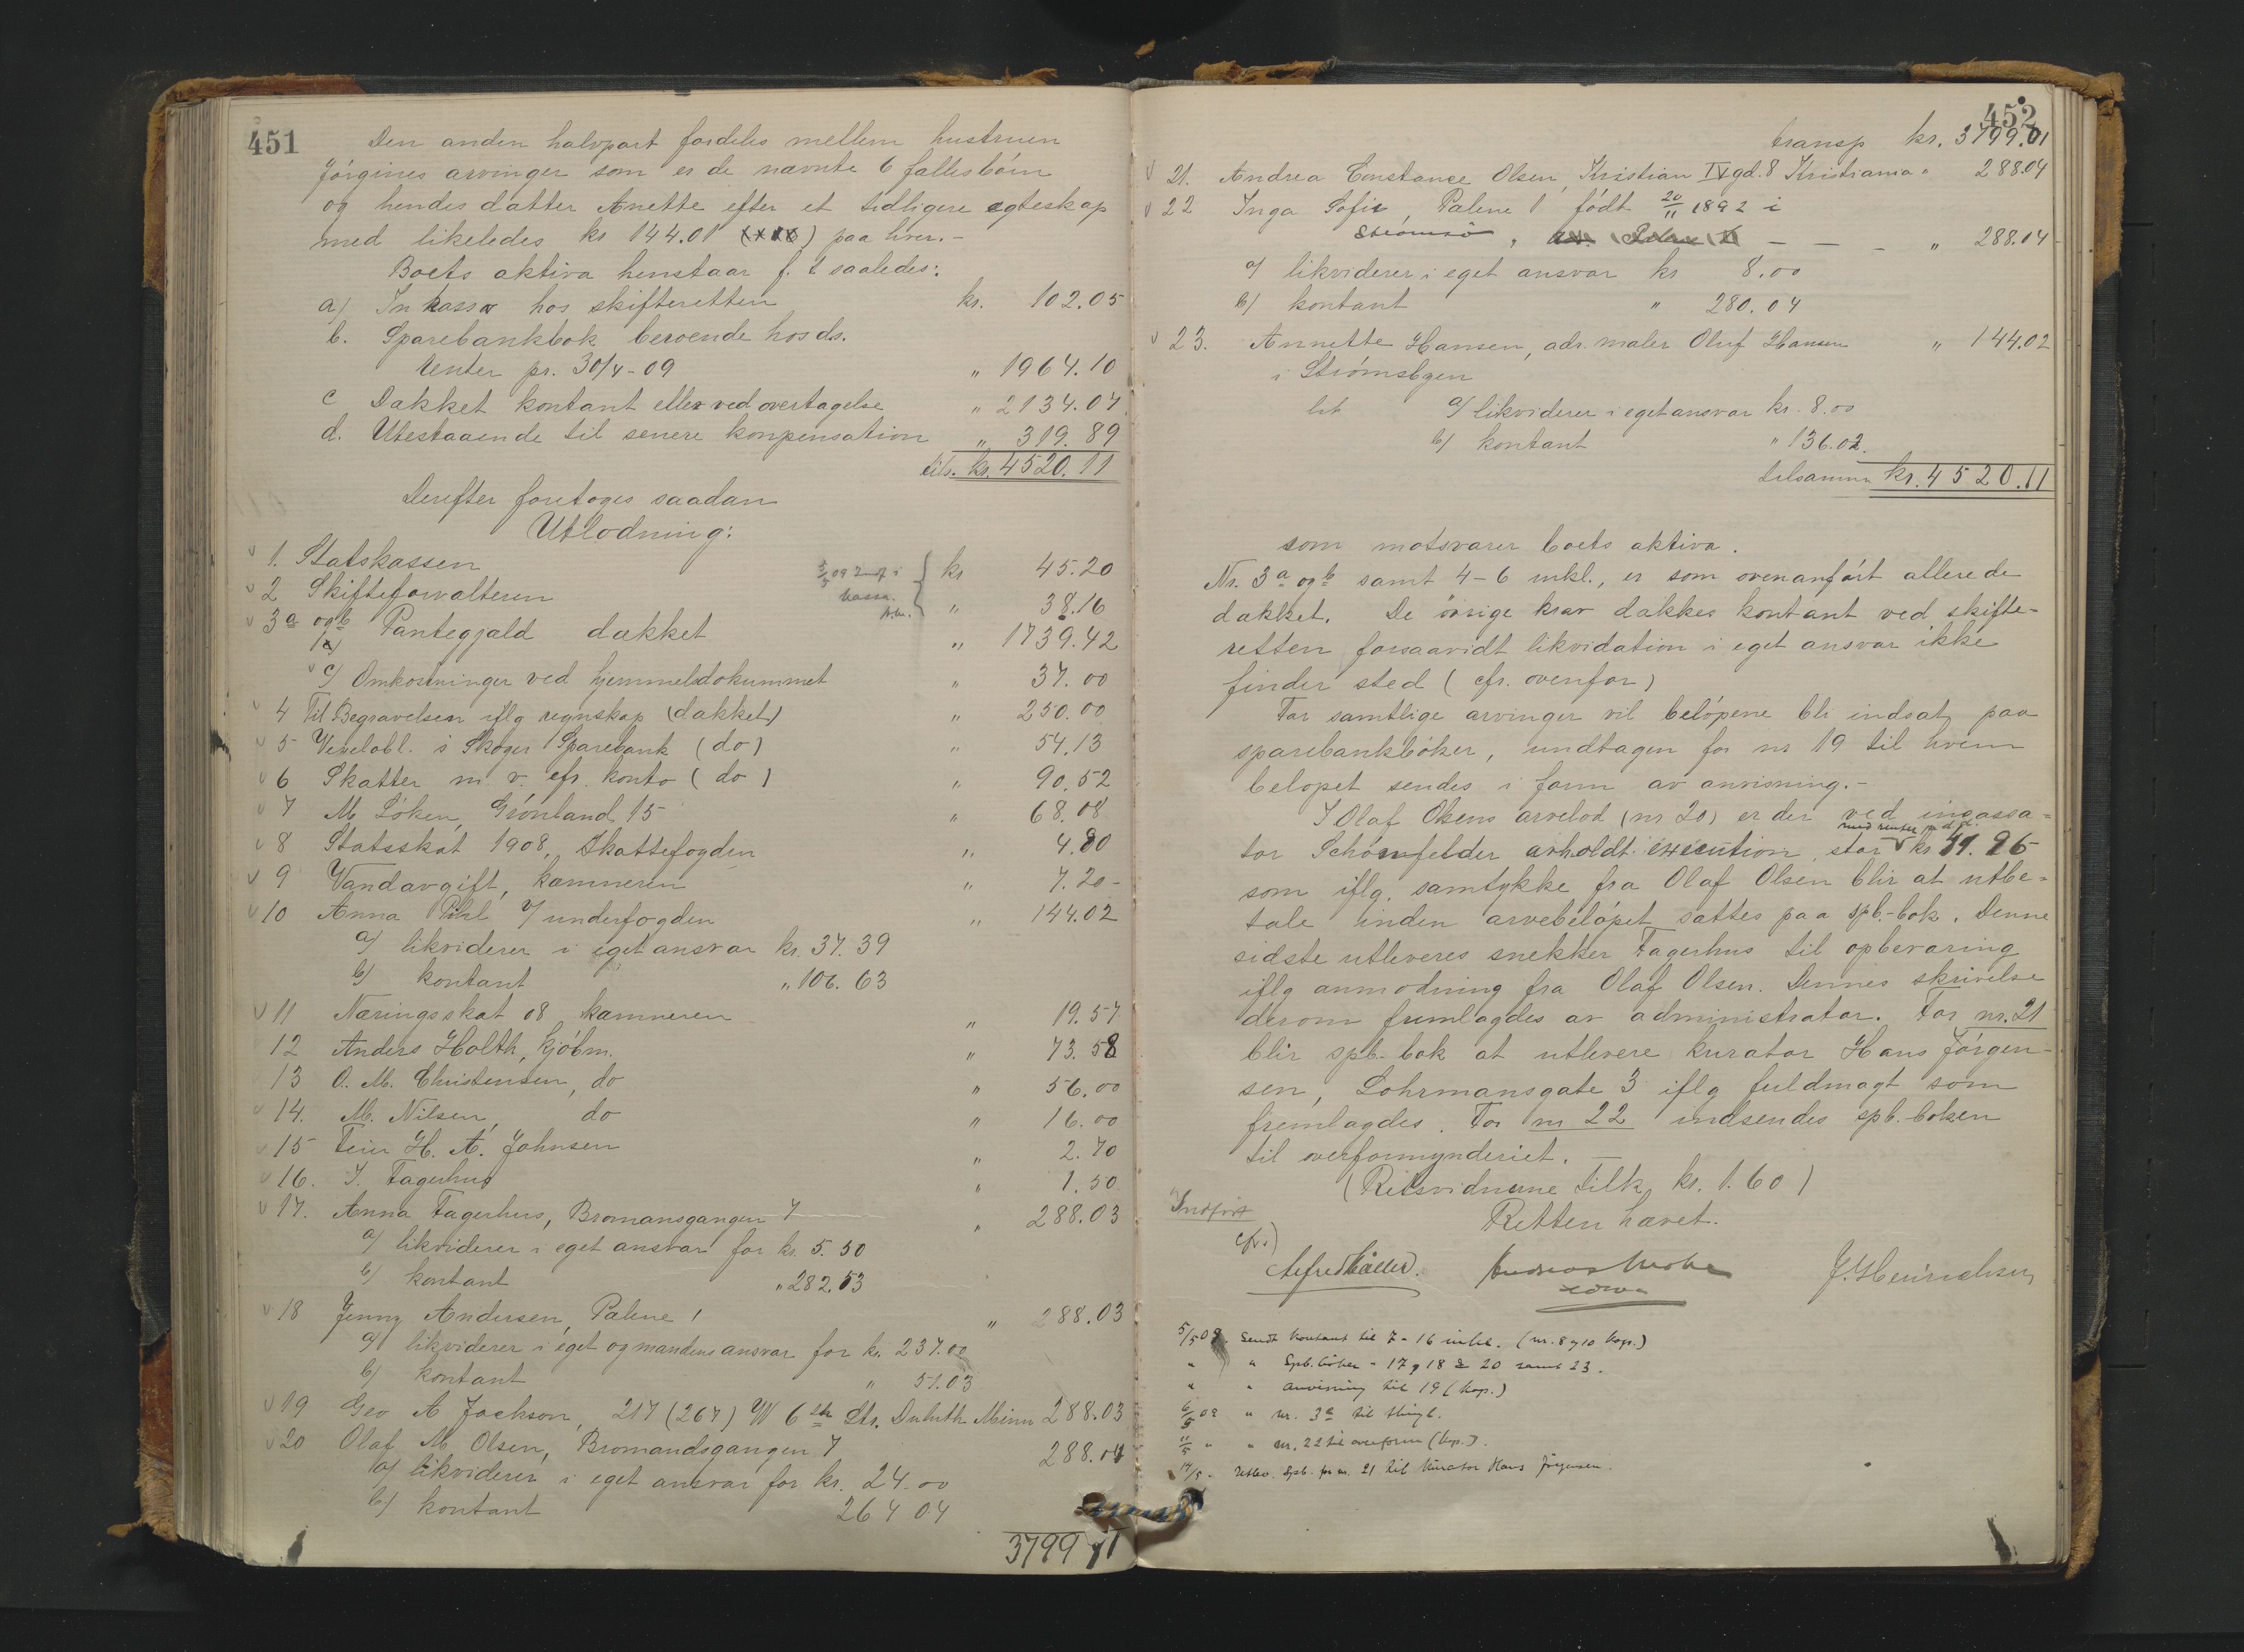 451
Den anden halvpart fordeles mellem hustruen
Jörgines arvinger som er de nævnte 6 fællesbörn
og hendes datter Anette efter et tidligere egteskap
med likeledes kr 144.01 paa hver.-
Boets aktiva henstaar f. t saaledes:
a) In kassa hos skifteretten kr. 102.05
b. Sparebankbok beroende hos ds.
renter pr. 30/4-09 " 1964.10
c Dækket kontant eller ved overtagelse " 2134.07
d. Utestaaende til senere kompensation " 319.89
tils. kr. 4520.11
Derefter foretoges saadan
Utlodning:
1. Statskassen kr 45.20
2 Skifteforvalteren " 38.16
5/5 09 indf i
kassa.
3a og b Pantegjæld dækket " 1739.42
c) Omkostninger ved hjemmelsdokummet " 37.00
4 Til Begravelsen iflg regnskap (dækket) " 250.00
5 Vexelobl. i Skoger Sparebank (do) " 54.13
6 Skatter m. v. cfr. konto (do) " 90.52
7 M. Löken, Grönland 15 " 68.08
8 Statsskat 1908, Skattefogden " 4.80
9 Vandavgift, kæmneren " 7.20-
10 Anna Pihl v/ underfogden " 144.02
a) likviderer i eget ansvar kr. 37.39
b) kontant " 106.63
11 Næringsskat 08 kæmneren " 19.57
12 Anders Holth, kjöbm. " 73.58
13 O. M. Christensen, do " 56.00
14. M. Nilsen, do " 16.00
15 Feier H. A. Johnsen " 2.70
16. J. Fagerhus " 1.50
17. Anna Fagerhus, Bromansgangen 7 " 288.03
a) likviderer i eget ansvar for kr. 5.50
b) kontant " 282.53
18 Jenny Andersen, Palene 1 " 288.03
a) likviderer i eget og mandens ansvar for kr. 237.00
b) kontant " 51.03
19 Geo A Jackson, 217 (267) W 6th Str. Duluth Minn 288.03
20 Olaf M Olsen, Bromandsgangen 7 288.04
a) likviderer i eget ansvar for kr. 24.00
b) kontant 264 04
3799 71
452
transp kr. 3799.01
21. Andrea Constance Olsen, Kristian IVgd. 8 Kristiania " 288.04
22 Inga Sofie, Palene 1 födt 20/11 1892 i
Strömsö, - - - " 288.04
a) likviderer i eget ansvar kr 8.00
b) kontant " 280.04
23. Annette Hansen, adr. maler Oluf Hansen " 144.02
i Strömsbyen
a) likviderer i eget ansvar kr. 8.00
b) kontant " 136.02.
tilsammen kr. 4520.11
som motsvarer boets aktiva.
Nr. 3a og b samt 4-6 inkl., er som ovenanfört allerede
dækket. De övrige krav dækkes kontant ved skifte-
retten forsaavidt likvidation i eget ansvar ikke
finder sted (cfr. ovenfor)
For samtlige arvinger vil belöpene bli indsat paa
sparebankböker, undtagen for nr 19 til hvem
belöpet sendes i form av anvisning.-
I Olaf Olsens arvelod (nr 20) er der ved incassa-
med renter
tor Schönfelder avholdt execution, stor kr 11.26
som iflg. samtykke fra Olaf Olsen blir at utbe-
tale inden arvebelöpet sættes paa spb.-bok. Denne
sidste utleveres snekker Fagerhus til opbevaring
iflg anmodning fra Olaf Olsen. Dennes skrivelse
derom fremlagdes av administrator. For nr. 21
blir spb-bok at utlevere kurator Hans Jörgen-
sen, Lohrmansgate 3 iflg fuldmagt som
fremlagdes. For nr 22 indsendes spb.-boken
til overformynderiet. -
(Retsvidnerne tilk. kr. 1.60)
Indfört Retten hævet.
J. Henrichsen
5/5 09. Sendt kontant til 7-16 inkl. (nr. 8 og 10 kop.)
" " Spb. böker - 17, 18 & 20 samt 23.
" " anvisning til 19 (kop.)
6/5 09 " nr. 3a til thingl.
11/5 " " nr. 22 til overform (kop.).
14/5 - Utlev. Spb. for nr. 21 til kurator Hans Jörgensen.